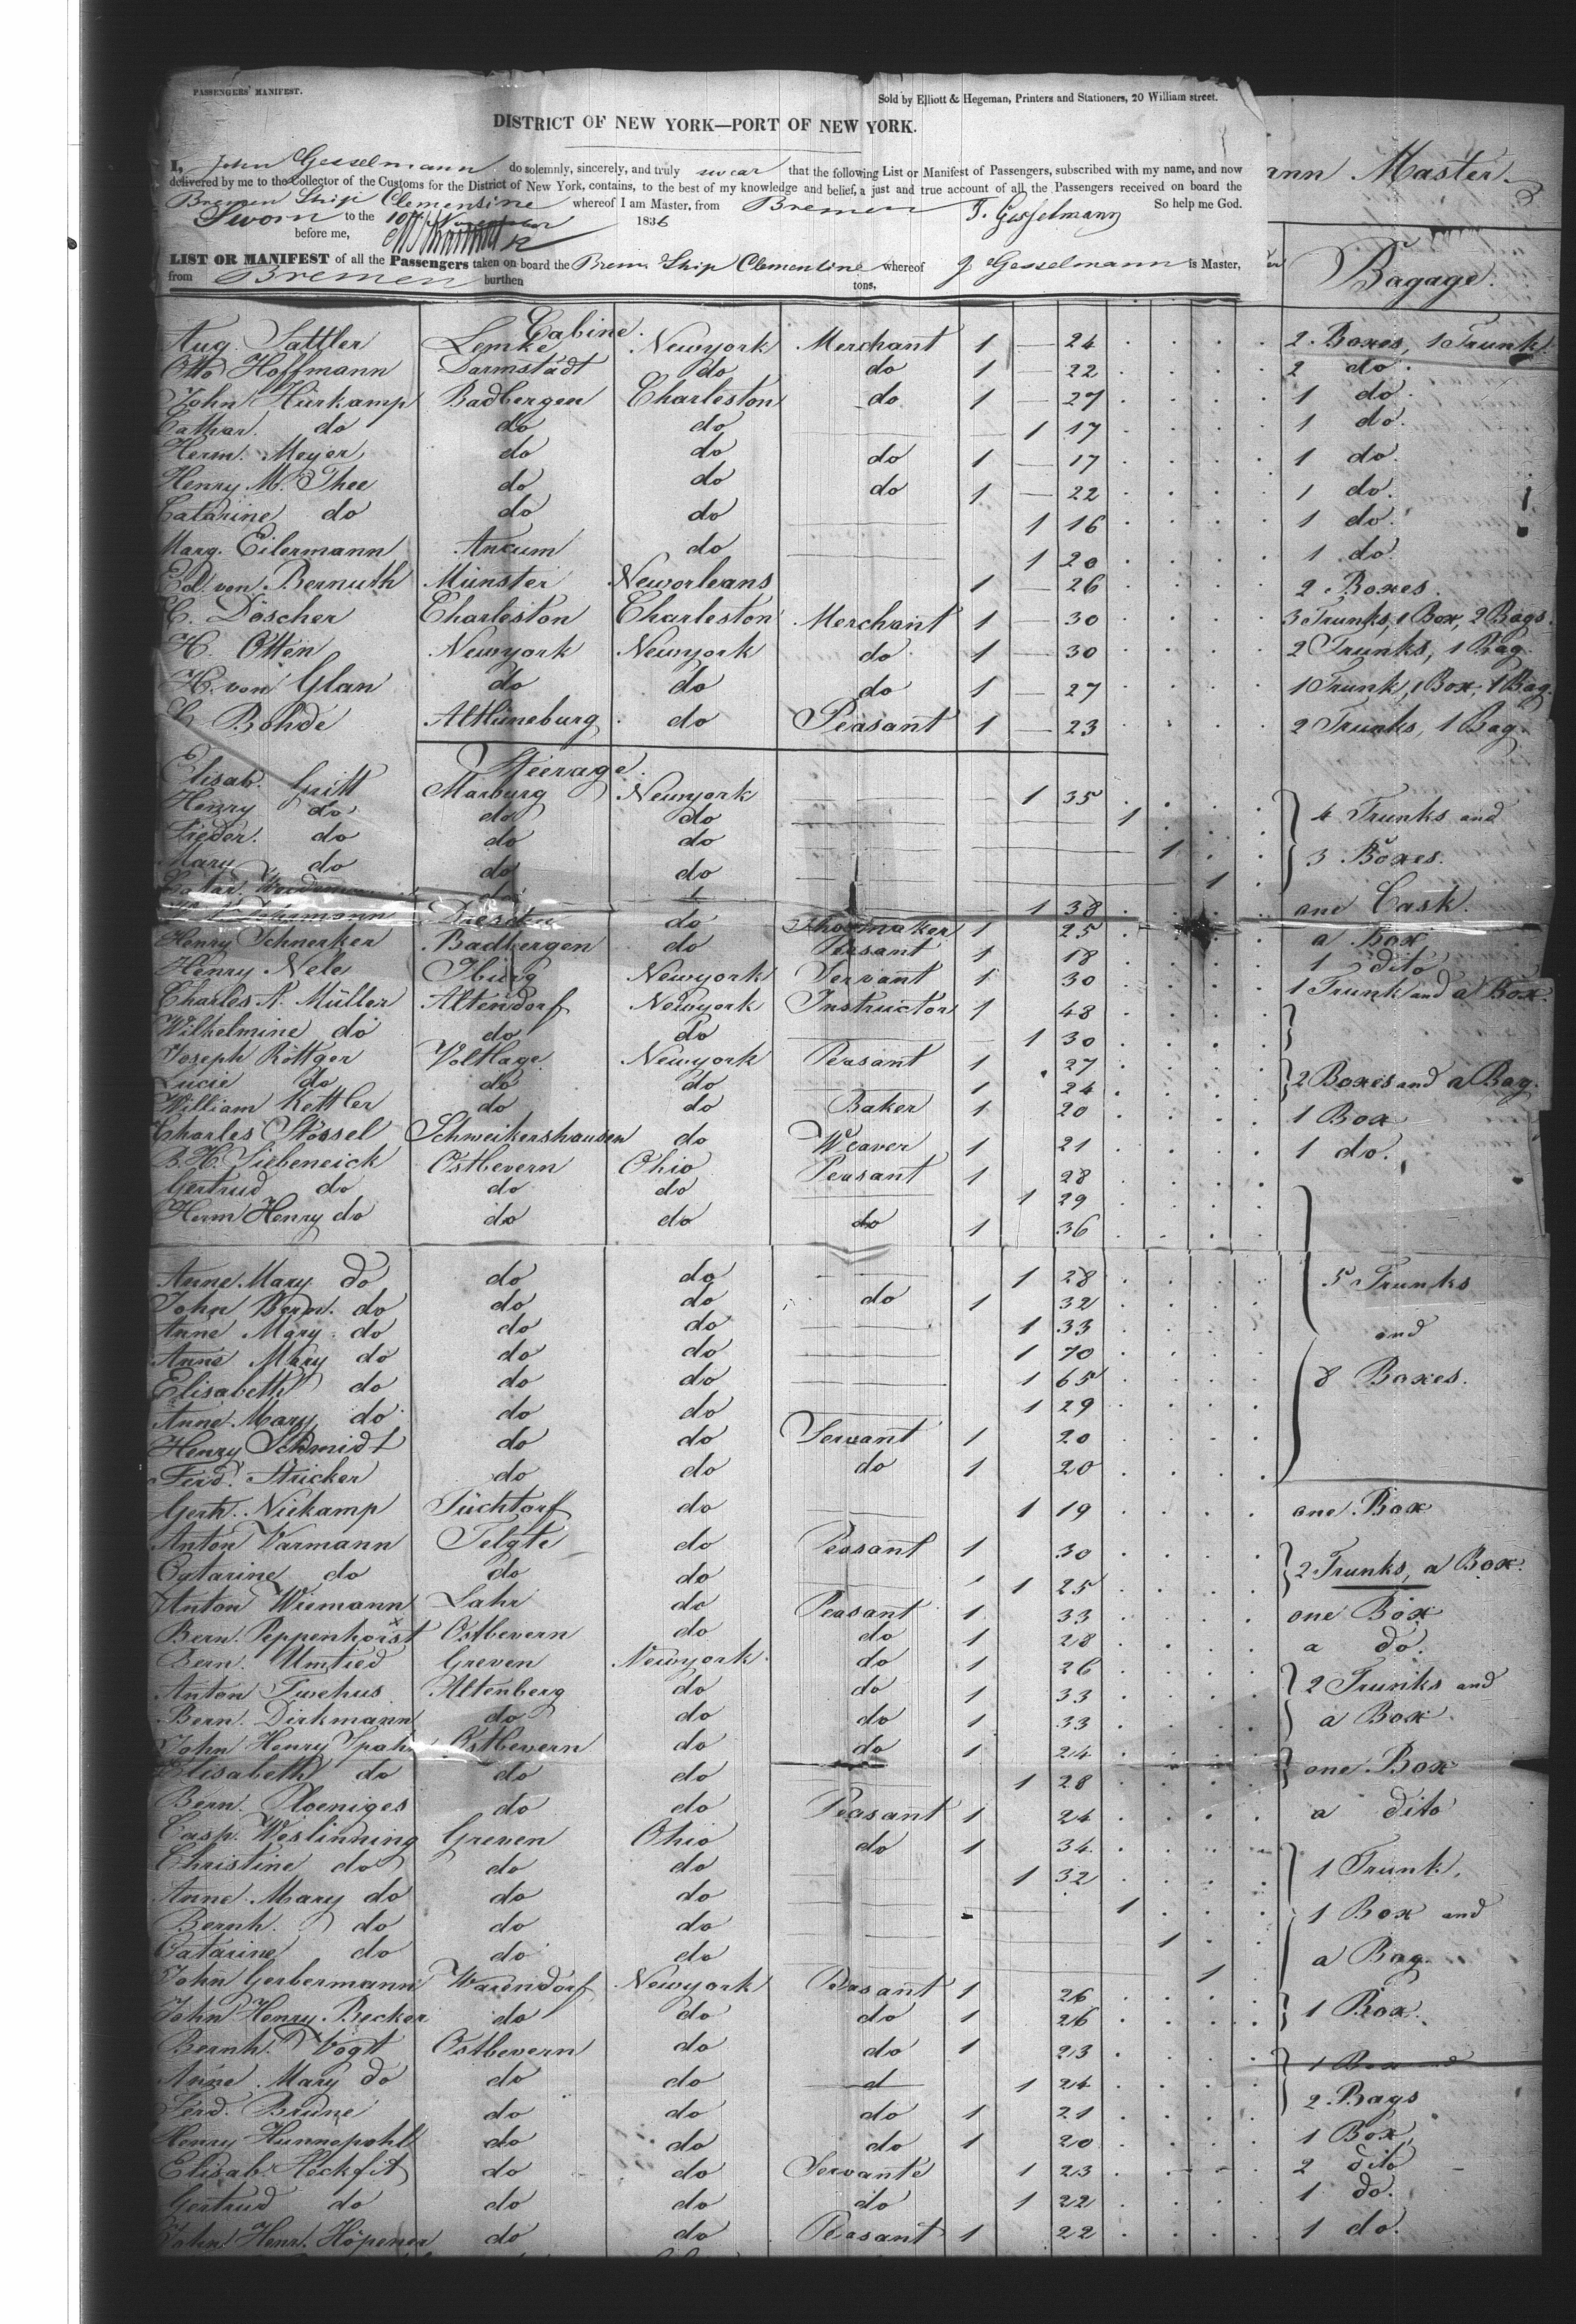 PASSENGERS' MANIFEST.
Sold by Elliott & Hegeman, Printers and Stationers, 20 William street.
DISTRICT OF NEW YORK—PORT OF NEW YORK.
I, John Gesselmann do solemnly, sincerely, and truly swear that the following List or Manifest of Passengers, subscribed with my name, and now
delivered by me to the Collector of the Customs for the District of New York, contains, to the best of my knowledge and belief, a just and true account of all the Passengers received on board the
Bremen Ship Clementine whereof I am Master, from Bremen So help me God.
Sworn to the 10th November 1836 J. Gesselmann
before me,
LIST OR MANIFEST of all the Passengers taken on board the Brem. Ship Clementine whereof J Gesselmann is Master,
from Bremen burthen tons,
ann Master.
Bagage.
Cabine.
Aug. Sattler Lemke Newyork Merchant 1 — 24 2 Boxes, 1 Trunk.
Otto Hoffmann Darmstadt do do 1 — 22 2 do.
John Hürkamp Badbergen Charleston do 1 — 27 1 do.
Cathar. do do do 1 17 1 do.
Herm. Meyer do do do 1 — 17 1 do.
Henry M. Thee do do do 1 — 22 1 do.
Catarine do do do 1 16 1 do.
Marg. Eilermann Ancum do 1 20 1 do.
Ed. von Bernuth Münster Neworleans 1 — 26 2 Boxes.
C. Döscher Charleston Charleston Merchant 1 — 30 3 Trunks, 1 Box, 2 Bags.
H. Otten Newyork Newyork do 1 — 30 2 Trunks, 1 Bag.
H. von Glan do do do 1 — 27 1 Trunk, 1 Box, 1 Bag.
Bohde Altlüneburg do Peasant 1 — 23 2 Trunks, 1 Bag.
Steerage.
Elisab. Gritt Marburg Newyork 1 35
Henry do do do 1 4 Trunks and
Frieder. do do do 1 3 Boxes.
Mary do do do 1
Catar. 1 38 one Cask.
Dresden do Shoemaker 1 25 a Box
Henry Schnerker Badbergen do Peasant 1 18 1 dito
Henry Nele Iburg Newyork Servant 1 30 1 Trunk and a Box.
Charles A. Müller Altendorf Newyork Instructor 1 48
Wilhelmine do do do 1 30
Joseph Röttger Voltlage Newyork Peasant 1 27 2 Boxes and a Bag.
Lucie do do do 1 24
William Kettler do do Baker 1 20 1 Box
Charles Stössel Schweikershausen do Weaver 1 21 1 do.
B. H. Siebeneick Ostbevern Ohio Peasant 1 28
Gertrud do do do 1 29
Herm Henry do do do do 1 36
Anne Mary do do do 1 28 5 Trunks
John Bern. do do do do 1 32
Anne Mary do do do 1 33 and
Anne Mary do do do 1 70
Elisabeth do do do 1 65 8 Boxes.
Anne Mary do do do 1 29
Henry Schmidt do do Servant 1 20
Ferd. Stricker do do do 1 20
Gertr. Niekamp Füchtorf do 1 19 one Box
Anton Varmann Telgte do Peasant 1 30 2 Trunks, a Box.
Catarine do do do 1 25
Anton Wiemann Lahr do Peasant 1 33 one Box
Bern. Peppenhorst Ostbevern do do 1 28 a do.
Bern. Umtied Greven Newyork do 1 26 2 Trunks and
Anton Twehus Altenberg do do 1 33
Bern. Dirkmann do do do 1 33 a Box
John Henry Spahn Ostbevern do do 1 24 one Box
Elisabeth do do do 1 28
Bern. Ploeniges do do Peasant 1 24 a dito
Casp. Weslinning Greven Ohio do 1 34
Christine do do do 1 32 1 Trunk,
Anne Mary do do do 1
Bernh. do do do 1 1 Box and
Catarine do do do 1 a Bag.
John Gerbermann Warendorf Newyork Peasant 1 26
John Henry Becker do do do 1 26 1 Box.
Bernh. Vogt Ostbevern do do 1 23 1 Box and
Anne Mary do do do d 1 24
Ferd. Brüne do do do 1 21 2 Bags
Henry Hunnepohl do do do 1 20 1 Box,
Elisab. Heckfit do do Servante 1 23 2 dito
Gertrud do do do do 1 22 1 do.
John Henr. Höpener do do Peasant 1 22 1 do.